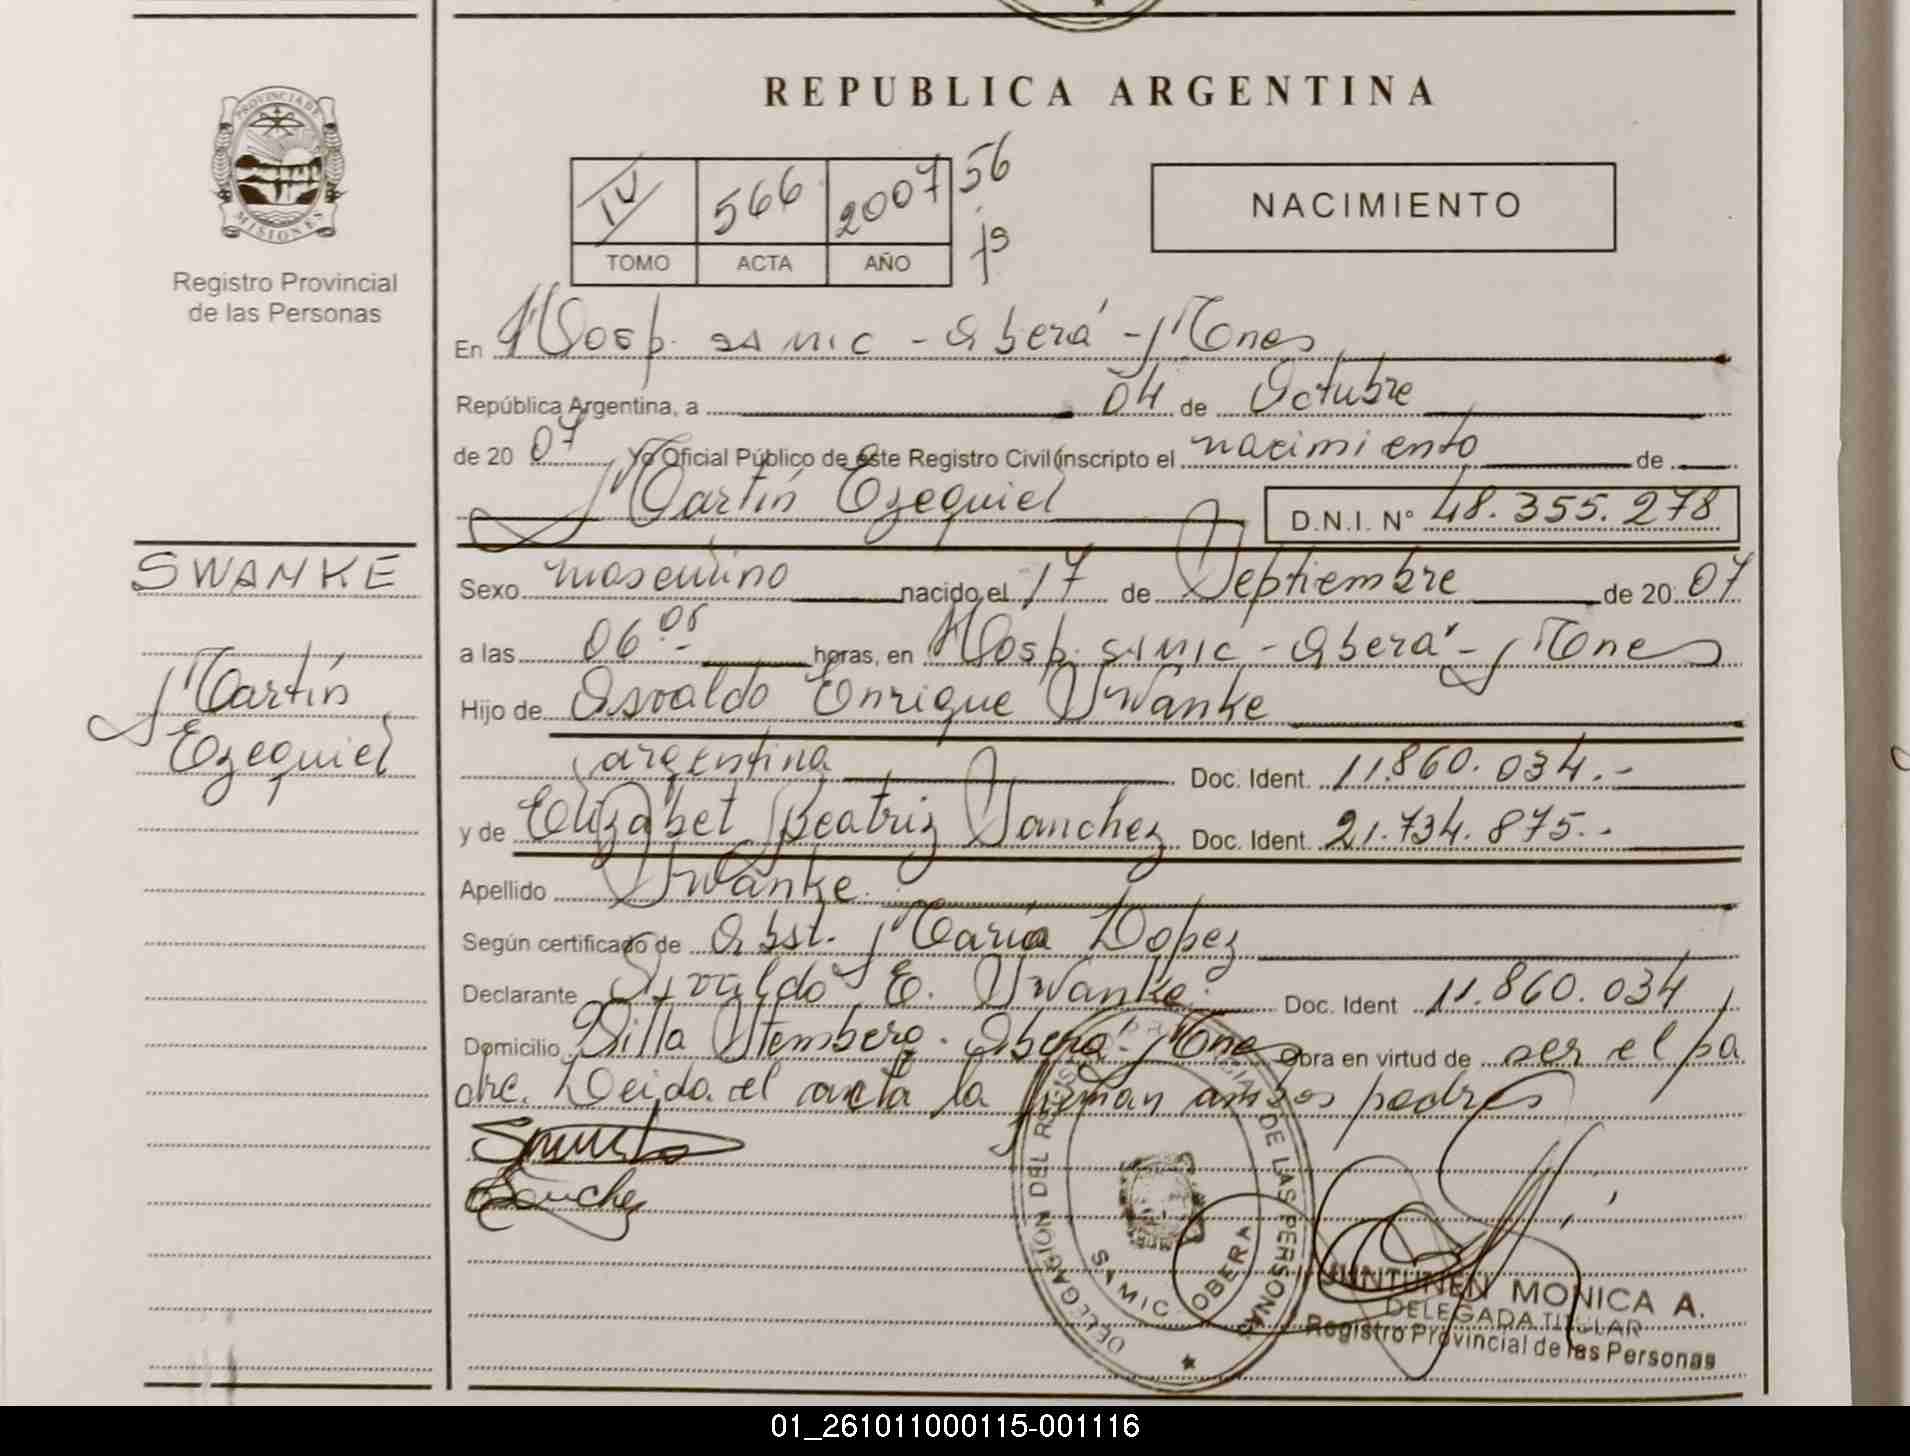 REPUBLICA ARGENTINA
PROVINCIA DE
MISIONES
Registro Provincial
de las Personas
IV 566 2007 56
TOMO ACTA AÑO
NACIMIENTO
En Hosp. SAMIC - Oberá - Mnes
República Argentina, a 04 de Octubre
de 20 07 Yo Oficial Público de este Registro Civil inscripto el nacimiento de
Martín Ezequiel D.N.I. N° 48.355.278
SWANKE
Martín
Ezequiel
Sexo masculino nacido el 17 de Septiembre de 20 07
a las 06 05 - horas, en Hosp. SAMIC - Oberá - Mnes
Hijo de Osvaldo Enrique Swanke
argentina Doc. Ident. 11.860.034.-
y de Elizabet Beatriz Sanchez Doc. Ident. 21.734.875.-
Apellido Swanke.
Según certificado de Obst. María Lopez
Declarante Osvaldo E. Swanke. Doc. Ident 11.860.034
Domicilio Villa Stemberg. Oberá - Mnes Obra en virtud de ser el pa
dre. Leida el acta la firman ambos padres
Sanchez
DELEGACION DEL REGISTRO PROVINCIAL DE LAS PERSONAS
SAMIC - OBERA
JUNTUNEN MONICA A.
DELEGADA TITULAR
Registro Provincial de las Personas
01_261011000115-001116